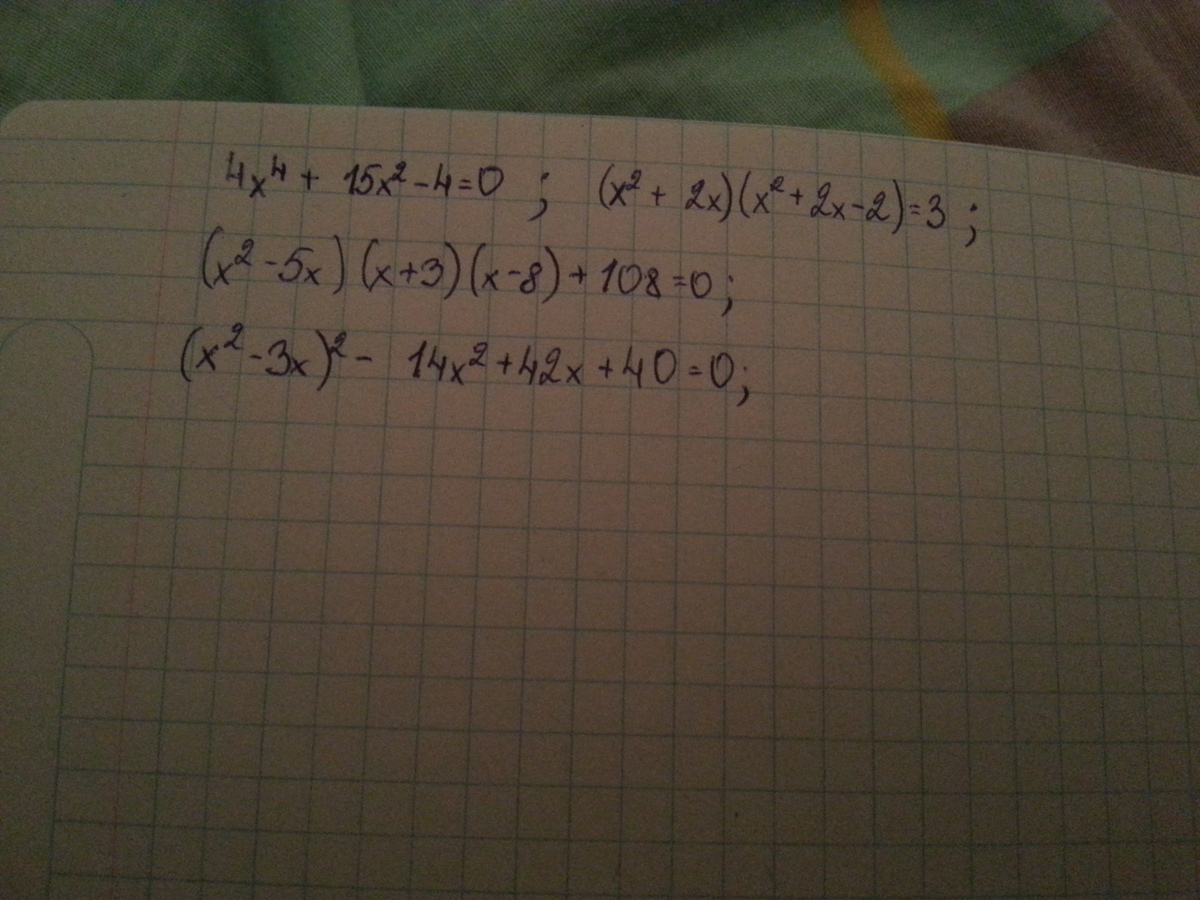 4x⁴ + 15x² - 4 = 0 ; (x² + 2x)(x² + 2x - 2) = 3 ;
(x² - 5x)(x + 3)(x - 8) + 108 = 0 ;
(x² - 3x)² - 14x² + 42x + 40 = 0 ;